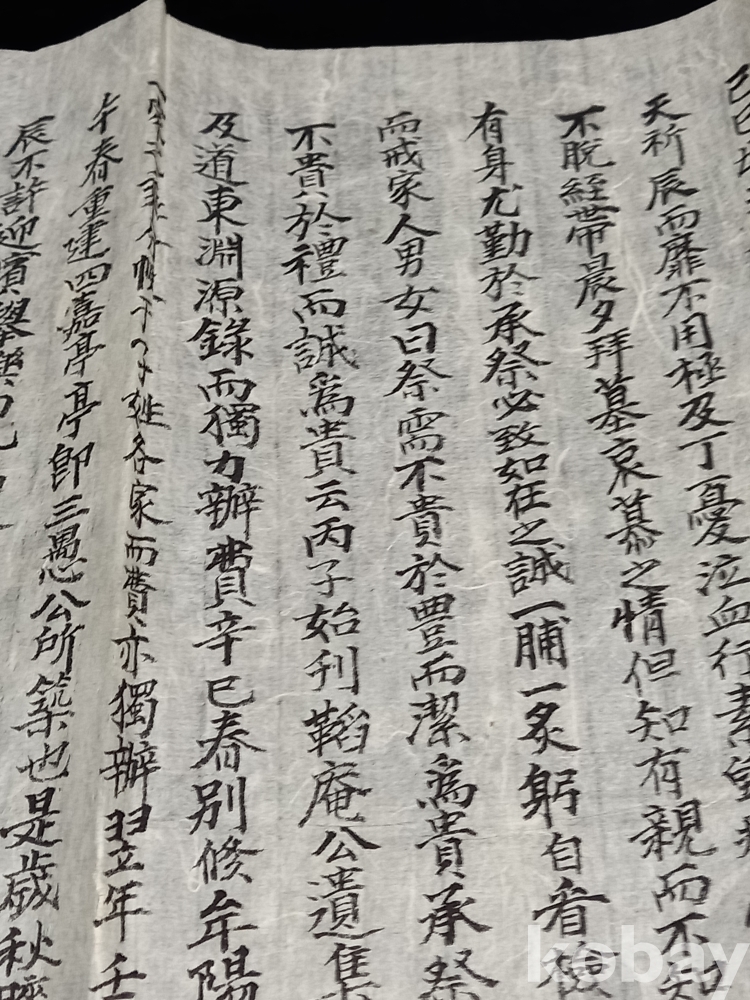 己巳
天祈辰而靡不用極及丁憂泣血行素
不脫絰帶晨夕拜墓哀慕之情但知有親而不知
有身尤勤於承祭必致如在之誠一脯一炙躬自看檢
而戒家人男女曰祭需不貴於豊而潔爲貴承祭
不貴於禮而誠爲貴云丙子始刊韜庵公遺集
及道東淵源錄而獨力辦費辛巳春別修牟陽
姓各家而費亦獨辦翌年壬
午春重建四嘉亭亭卽三愚公所築也是歲秋
辰不許迎賓擧
kobay